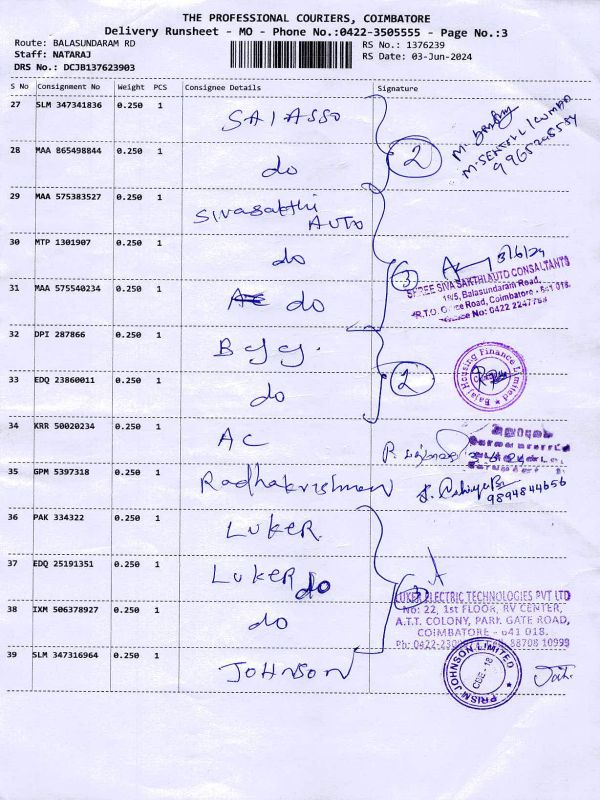 THE PROFESSIONAL COURIERS, COIMBATORE
Delivery Runsheet - MO - Phone No.:0422-3505555 - Page No.:3
Route: BALASUNDARAM RD
Staff: NATARAJ
DRS No.: DCJB137623903
RS No.: 1376239
RS Date: 03-Jun-2024
S No Consignment No Weight PCS Consignee Details Signature
27 SLM 347341836 0.250 1 SAI ASSO
28 MAA 865498844 0.250 1 do
2
M.SENTHIL KUMAR
29 MAA 575383527 0.250 1 Sivasakthi
AUTO
30 MTP 1301907 0.250 1 do
31 MAA 575540234 0.250 1 do
3
3/6/24
SHREE SIVA SAKTHI AUTO CONSALTANTS
18/5, Balasundaram Road,
R.T.O. Office Road, Coimbatore - 641 018.
Office No: 0422 2247788
32 DPI 287866 0.250 1
33 EDQ 23860011 0.250 1 do
2
Bajaj Housing Finance Limited
34 KRR 50020234 0.250 1 AC
35 GPM 5397318 0.250 1 Radhakrishnan
9894844656
36 PAK 334322 0.250 1 LUKER
37 EDQ 25191351 0.250 1 LUKER do
38 IXM 506378927 0.250 1 do
LUKER ELECTRIC TECHNOLOGIES PVT LTD
No: 22, 1st FLOOR, RV CENTER,
A.T.T. COLONY, PARK GATE ROAD,
COIMBATORE - 641 018.
39 SLM 347316964 0.250 1 JOHNSON
PRISM JOHNSON LIMITED
CBE - 18